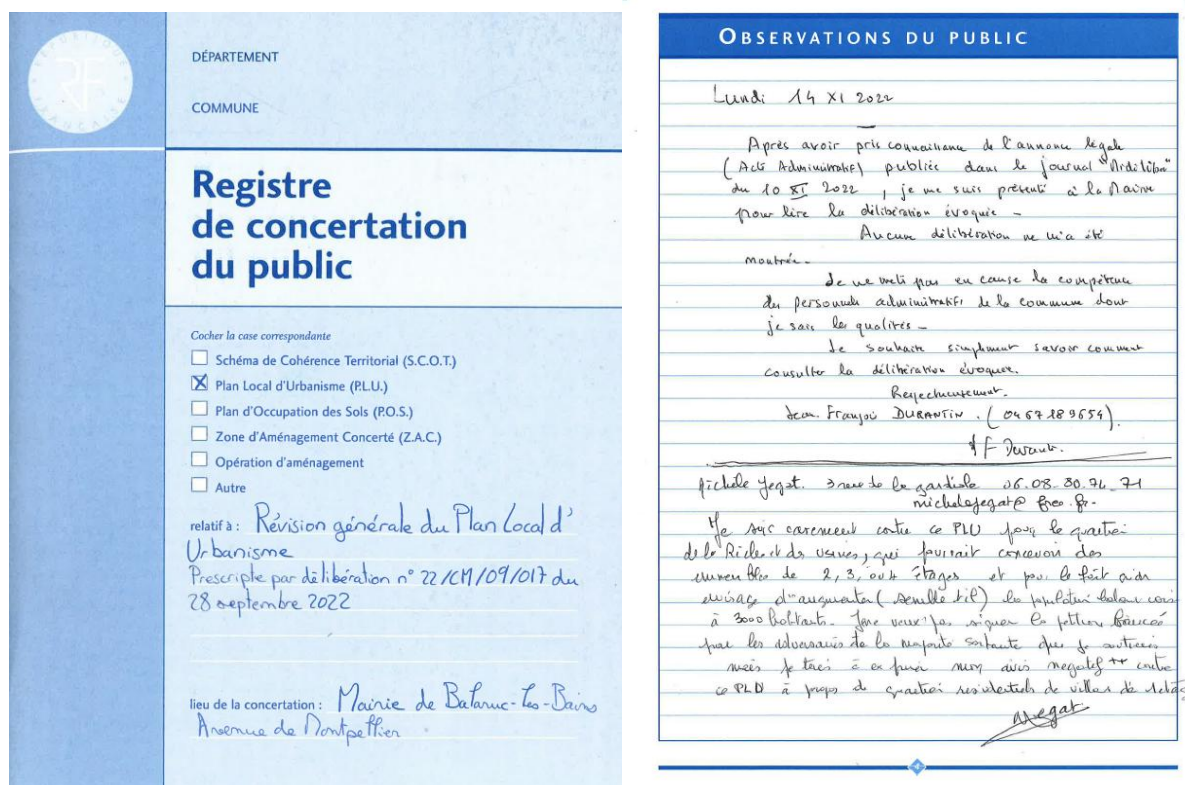 RÉPUBLIQUE FRANÇAISE
RF
DÉPARTEMENT
COMMUNE
Registre
de concertation
du public
Cocher la case correspondante
Schéma de Cohérence Territorial (S.C.O.T.)
Plan Local d'Urbanisme (P.L.U.)
Plan d'Occupation des Sols (P.O.S.)
Zone d'Aménagement Concerté (Z.A.C.)
Opération d'aménagement
Autre
relatif à : Révision générale du Plan Local d'
Urbanisme
Prescripte par délibération n° 22/CM/09/017 du
28 septembre 2022
lieu de la concertation : Mairie de Balaruc-les-Bains
Avenue de Montpellier
OBSERVATIONS DU PUBLIC
Lundi 14 XI 2022
Après avoir pris connaissance de l'annonce légale
(Acte Administratif) publiée dans le journal
du 10 XI 2022, je me suis présenté à la Mairie
pour lire la délibération évoquée -
Aucune délibération ne m'a été
montrée.
Je ne mets pas en cause la compétence
des personnels administratifs de la commune dont
je sais les qualités -
Je souhaite simplement savoir comment
consulter la délibération évoquée.
Respectueusement.
Jean François DURANTIN. (0467189654).
JF Durantin
Michèle Jegat. 3 rue de la gardiole 06.08.30.74.71
michelejegat@free.fr.
Je suis carrément contre ce PLU pour le quartier
de la Rèche et des usines, qui pourrait concevoir des
immeubles de 2, 3, ou 4 étages et par le fait
envisage d'augmenter (semble til) la population
à 3000 habitants. Je ne veux pas signer la pétition
par les adversaires de la majorité sortante que je soutiens
mais je tiens à exprimer mon avis negatif ++ contre
ce PLU à propos de quartier résidentiels de villas de
Jegat
4